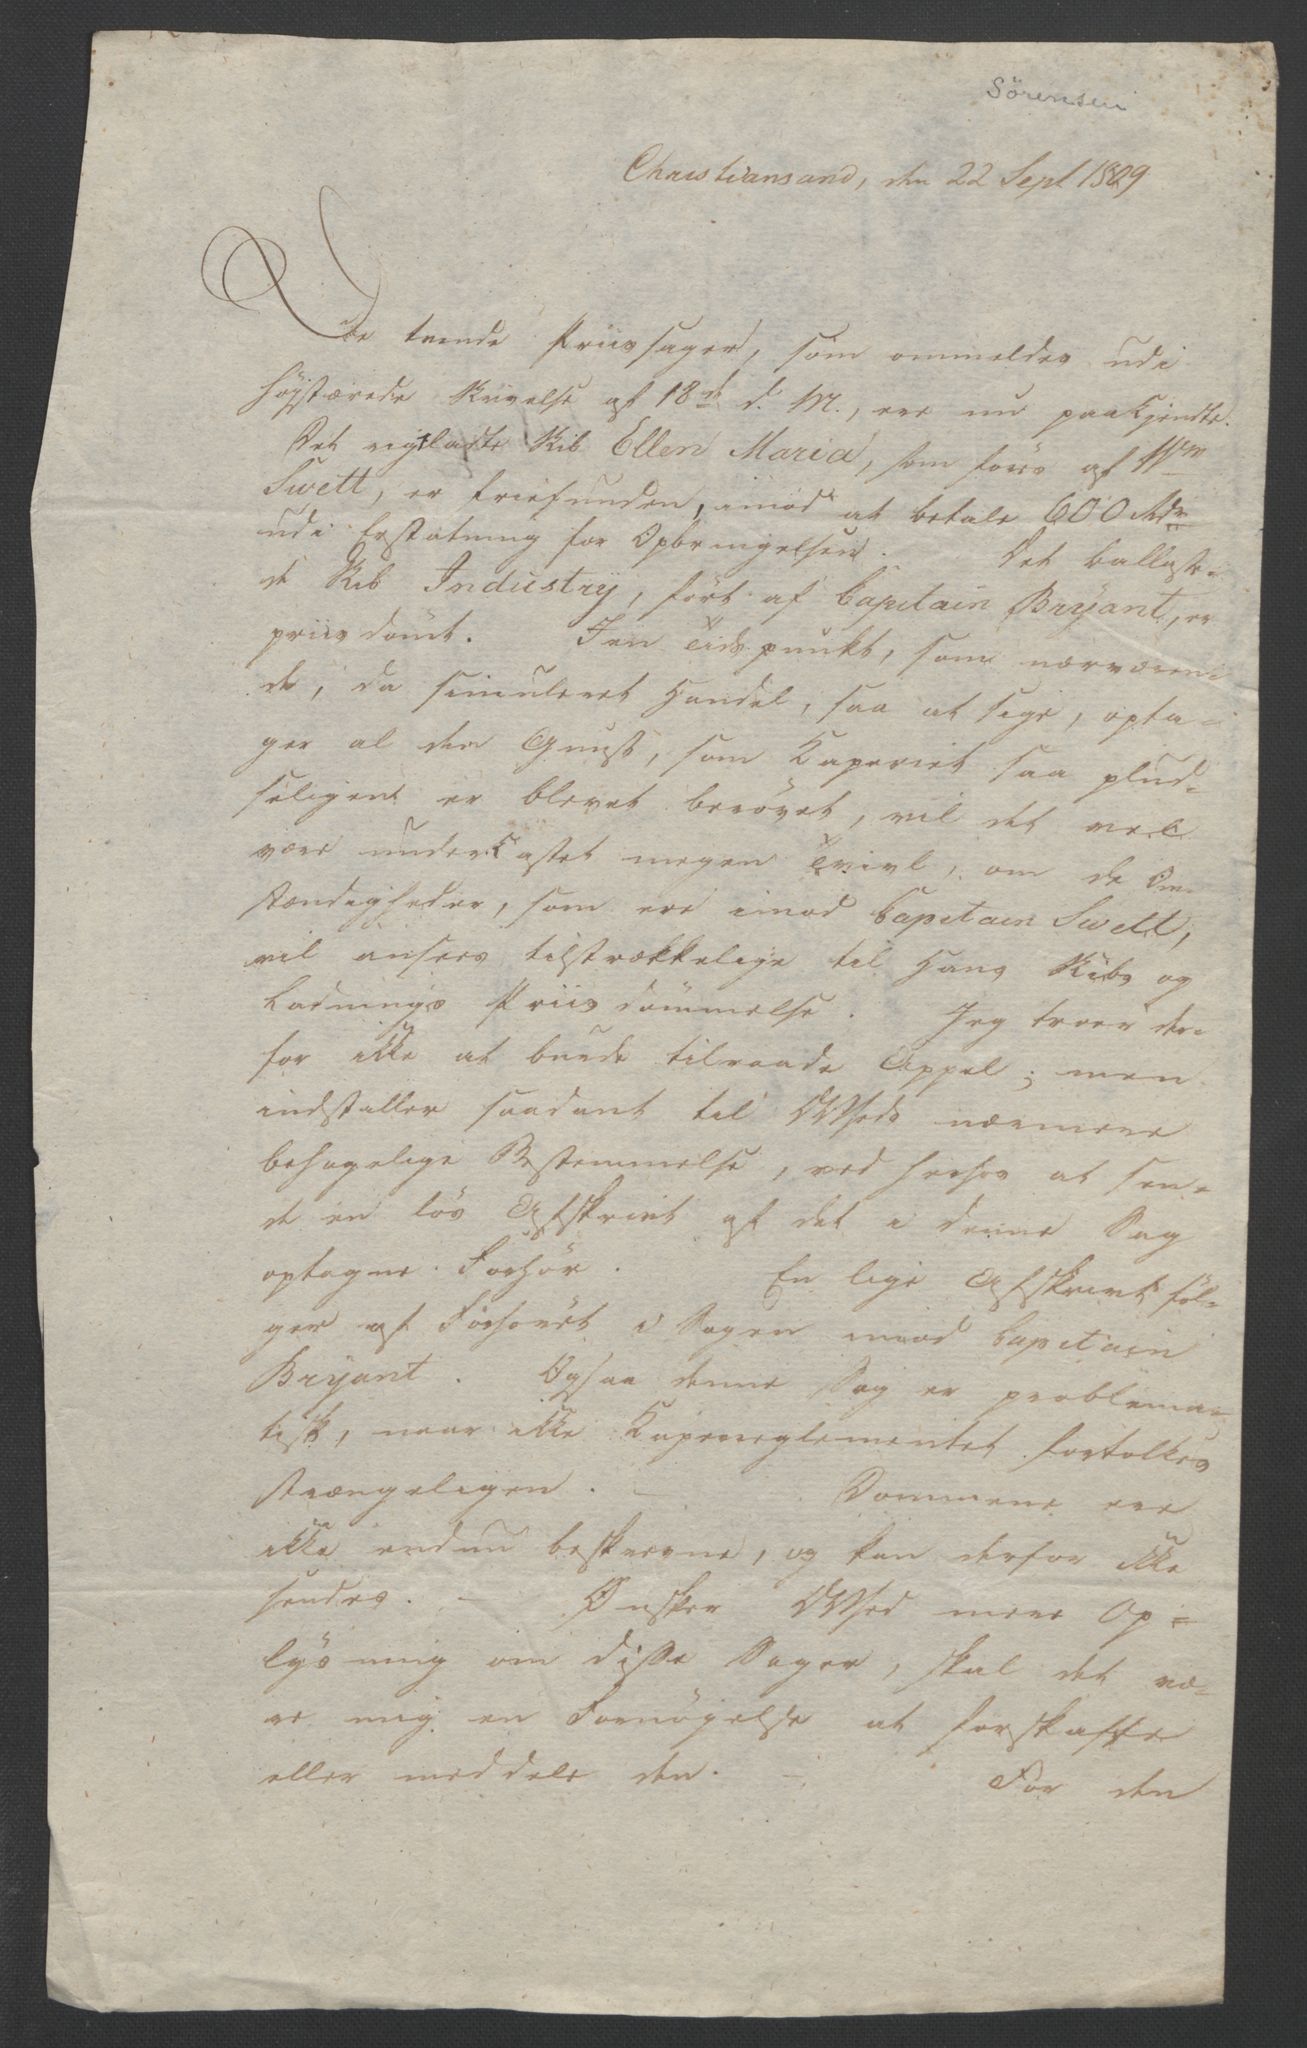 Sörensen
Christiansand, den 22 Sept 1809
De tvende Priissager, som ommeldes udi
høystærede Skrivelse af 18de d. M., ere nu paakjendte.
Det rigtladte Skib Ellen Maria, som föres af Wm
Swett, er friefunden, imod at betale 600 Rdr
udi Erstatning for Opbringelsen. Det ballaste-
de Skib Industry, fört af Capitain Bryant, er
priisdömt. I en Tidspunkt, som nærværen-
de, da simuleret Handel, saa at sige, opta-
ger al den Gunst, som Kaperiet saa plud-
seligen er blevet berövet, vil det vel
være underkastet megen Tvivl, om de Om-
stændigheder, som ere imod Capitain Swett,
vil ansees tilstrækkelige til Hans Skibs og
Ladnings Priisdömmelse. Jeg troer der-
for ikke at burde tilraade Appel; men
indstiller saadant til DHrs nærmere
behagelige Bestemmelse, ved herhos at sen-
de en løs Afskrivt af det i denne Sag
optagne Forhör. En lige Afskrivt föl-
ger af Forhöret i Sagen imod Capitain
Bryant. Ogsaa denne Sag er problema-
tisk, naar ikke Kaperreglementet fortolkes
strængeligen. Dommene ere
ikke endnu beskrevne, og kan derfor ikke
sendes. – Ønsker mere Op-
lysning om disse Sager, skal det væ-
re mig en Fornöyelse at forskaffe
eller meddele den. – For den